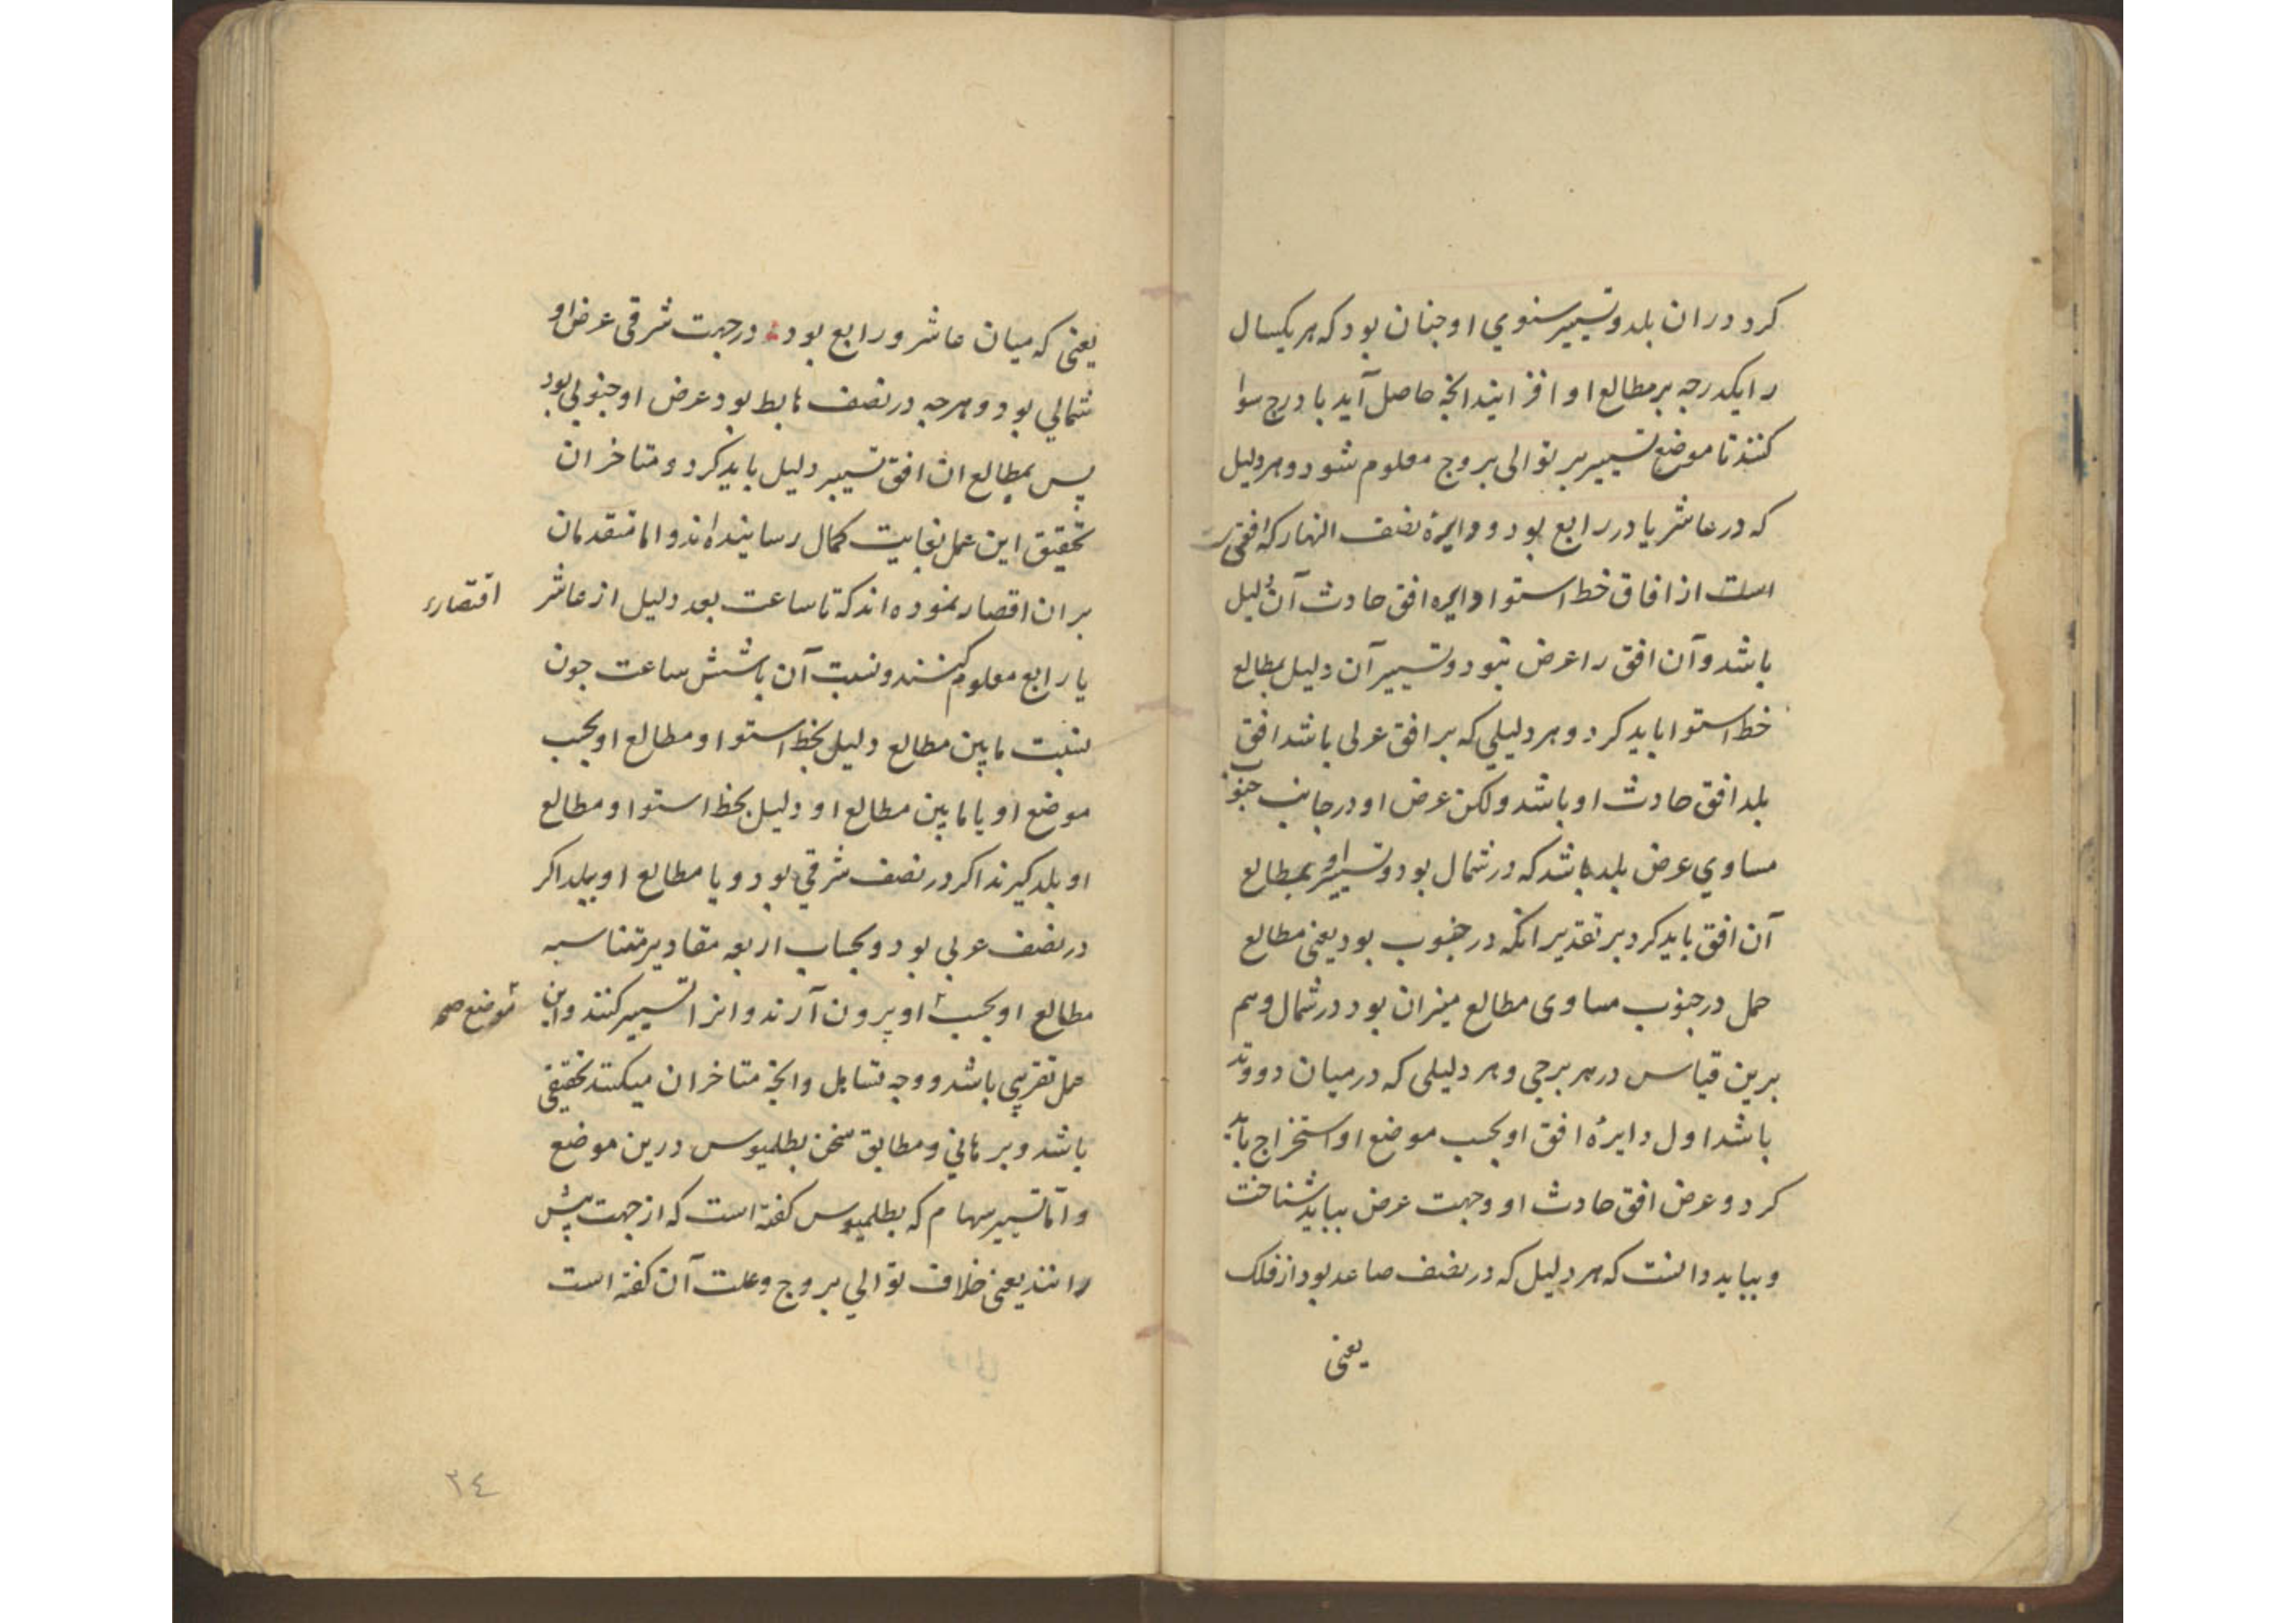 کرد دران بلد و تسییر سنوي او چنان بود که هر یکسال
را یکدرجه بر مطالع او افزایند انچه حاصل آید با درج سوا
کنند تا موضع تسییر بر توالی بروج معلوم شود و هر دلیل
که در عاشر یا در رابع بود و دایرهٔ نصف النهار که افقی
است از افاق خط استوا دایره افق حادث آن دلیل
باشد و آن افق را عرض نبود و تسییر آن دلیل بمطالع
خط استوا باید کرد و هر دلیلي که بر افق غربی باشد افق
بلد افق حادث او باشد ولکن عرض او در جانب جنوب
مساوي عرض بلد باشد که در شمال بود و تسییر او بمطالع
آن افق باید کرد بر تقدیر انکه در جنوب بود یعنی مطالع
حمل در جنوب مساوی مطالع میزان بود در شمال و هم
برین قیاس در هر برجی و هر دلیلی که در میان دو وتد
باشد اول دایرهٔ افق او بحسب موضع او استخراج باید
کرد و عرض افق حادث او و جهت عرض بباید شناخت
و بباید دانست که هر دلیل که در نصف صاعد بود از فلک
یعنی
یعنی که میان عاشر و رابع بود در جهت شرقی عرض او
شمالي بود و هرچه در نصف هابط بود عرض او جنوبي بود
پس بمطالع ان افق تسییر دلیل باید کرد و متاخران
تحقیق این عمل بغایت کمال رسانیده اند و اما متقدمان
بر ان اقصار نموده اند که تا ساعت بعد دلیل از عاشر
اقتصار
یا رابع معلوم کنند و نسبت آن با شش ساعت چون
نسبت مابین مطالع دلیل بخط استوا و مطالع او بحسب
موضع او یا مابین مطالع او دلیل بخط استوا و مطالع
او بلد کیرند اکر در نصف شرقي بود و یا مطالع او ببلد اکر
در نصف غربي بود و بحساب اربعه مقادیر متناسبه
مطالع او بحسب او بیرون آرند و انرا تسییر کنند و این
موضع صح
عمل تقریبي باشد و وجه تساهل و انچه متاخران میکنند تحقیقی
باشد و برهاني و مطابق سخن بطلمیوس درین موضع
و اما تسییر سهام که بطلمیوس کفته است که از جهت پیش
رانند یعنی خلاف توالي بروج و علت آن کفته است
٣٤